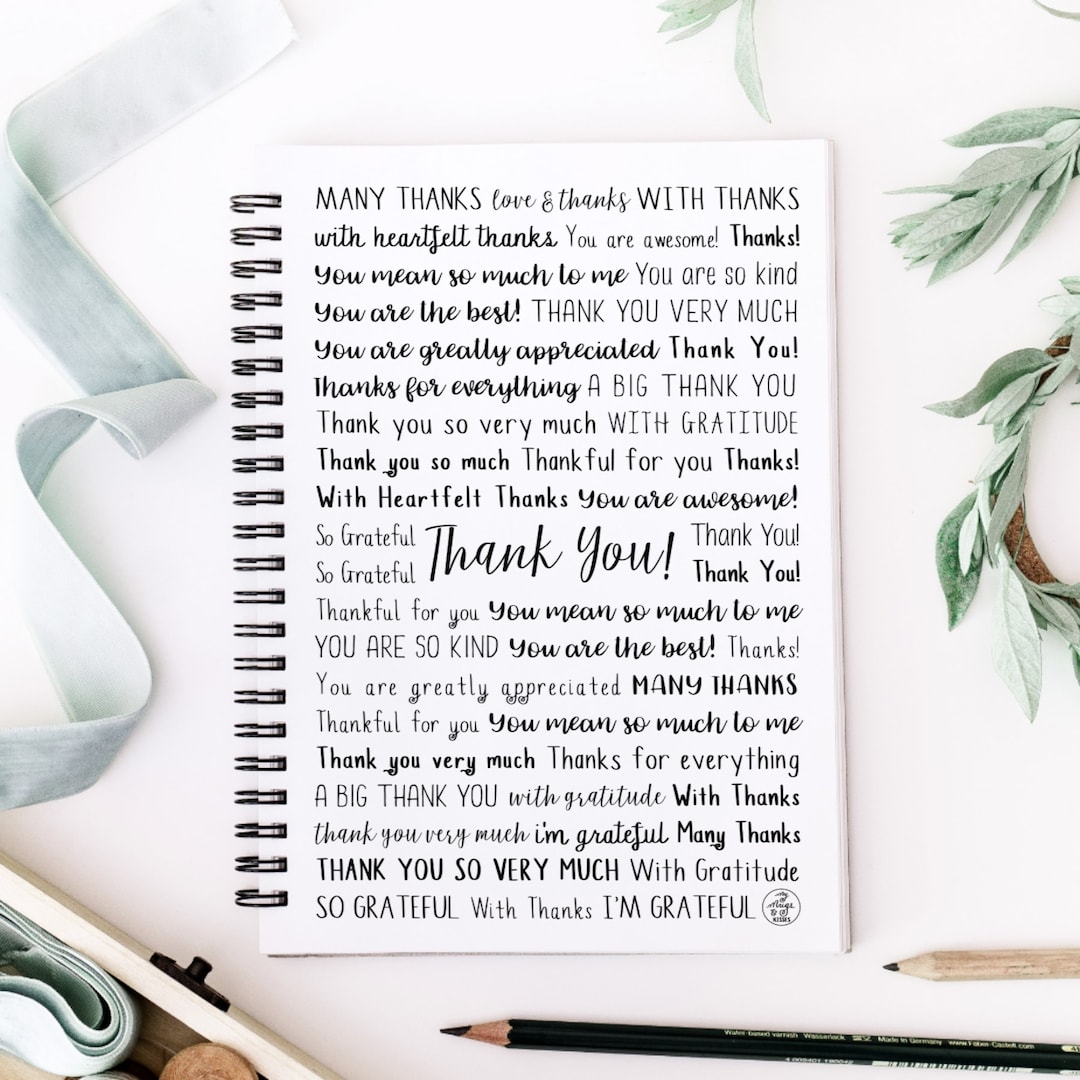 MANY THANKS love & thanks WITH THANKS
with heartfelt thanks You are awesome! Thanks!
You mean so much to me You are so kind
You are the best! THANK YOU VERY MUCH
You are greatly appreciated Thank You!
Thanks for everything A BIG THANK YOU
Thank you so very much WITH GRATITUDE
Thank you so much Thankful for you Thanks!
With Heartfelt Thanks You are awesome!
So Grateful
So Grateful
Thank You!
Thank You!
Thank You!
Thankful for you You mean so much to me
YOU ARE SO KIND You are the best! Thanks!
You are greatly appreciated MANY THANKS
Thankful for you You mean so much to me
Thank you very much Thanks for everything
A BIG THANK YOU with gratitude With Thanks
thank you very much i'm grateful Many Thanks
THANK YOU SO VERY MUCH With Gratitude
SO GRATEFUL With Thanks I'M GRATEFUL
KISSES
Water-based varnish Wasserlack Made in Germany www.Faber-Castell.com